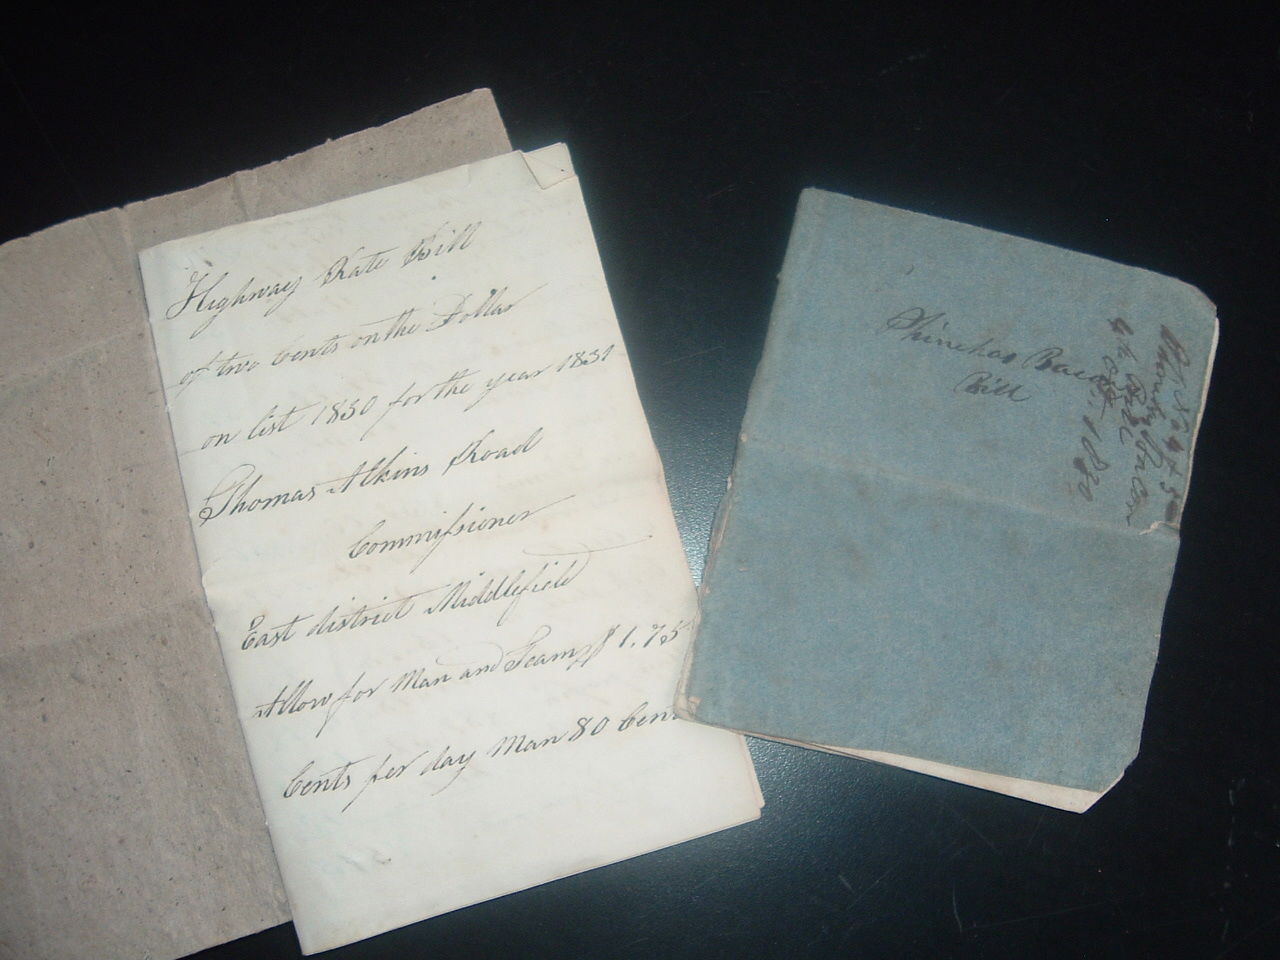 Highway Rate Bill
of two Cents on the Dollar
on list 1830 for the year 1831
Thomas Atkins Road
Commissioner
East district Middlefield
Allow for Man and Team $1.75
Cents per day Man 80 Cent
Phinehas Bacon
Bill
Bacon
Oct. 1820